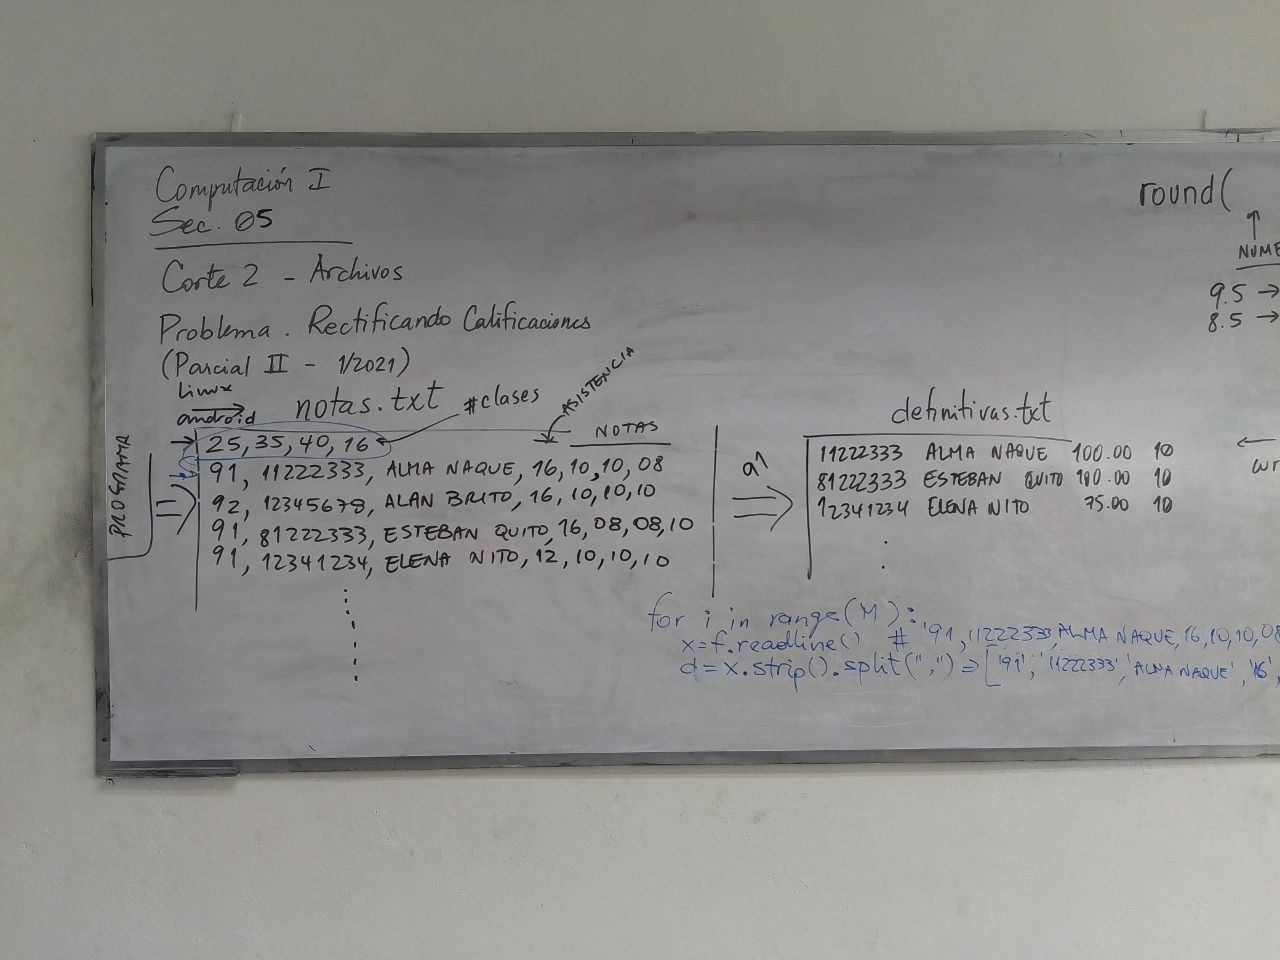 Computación I
Sec. 05
Corte 2 - Archivos
Problema. Rectificando Calificaciones
(Parcial II - 1/2021)
Linux
android
notas.txt
#clases
ASISTENCIA
NOTAS
PROGRAMA
25,35,40,16
91, 11222333, ALMA NAQUE, 16,10,10,08
92, 12345678, ALAN BRITO, 16,10,10,10
91, 81222333, ESTEBAN QUITO, 16,08,08,10
91, 12341234, ELENA NITO, 12,10,10,10
definitivas.txt
11222333 ALMA NAQUE 100.00 10
81222333 ESTEBAN QUITO 100.00 10
12341234 ELENA NITO 75.00 10
round(
NUME
9.5 →
8.5 →
for i in range(M):
x=f.readline() # '91,11222333,ALMA NAQUE,16,10,10,08
d=x.strip().split(",") ⇒ ['91','11222333','ALMA NAQUE','16',